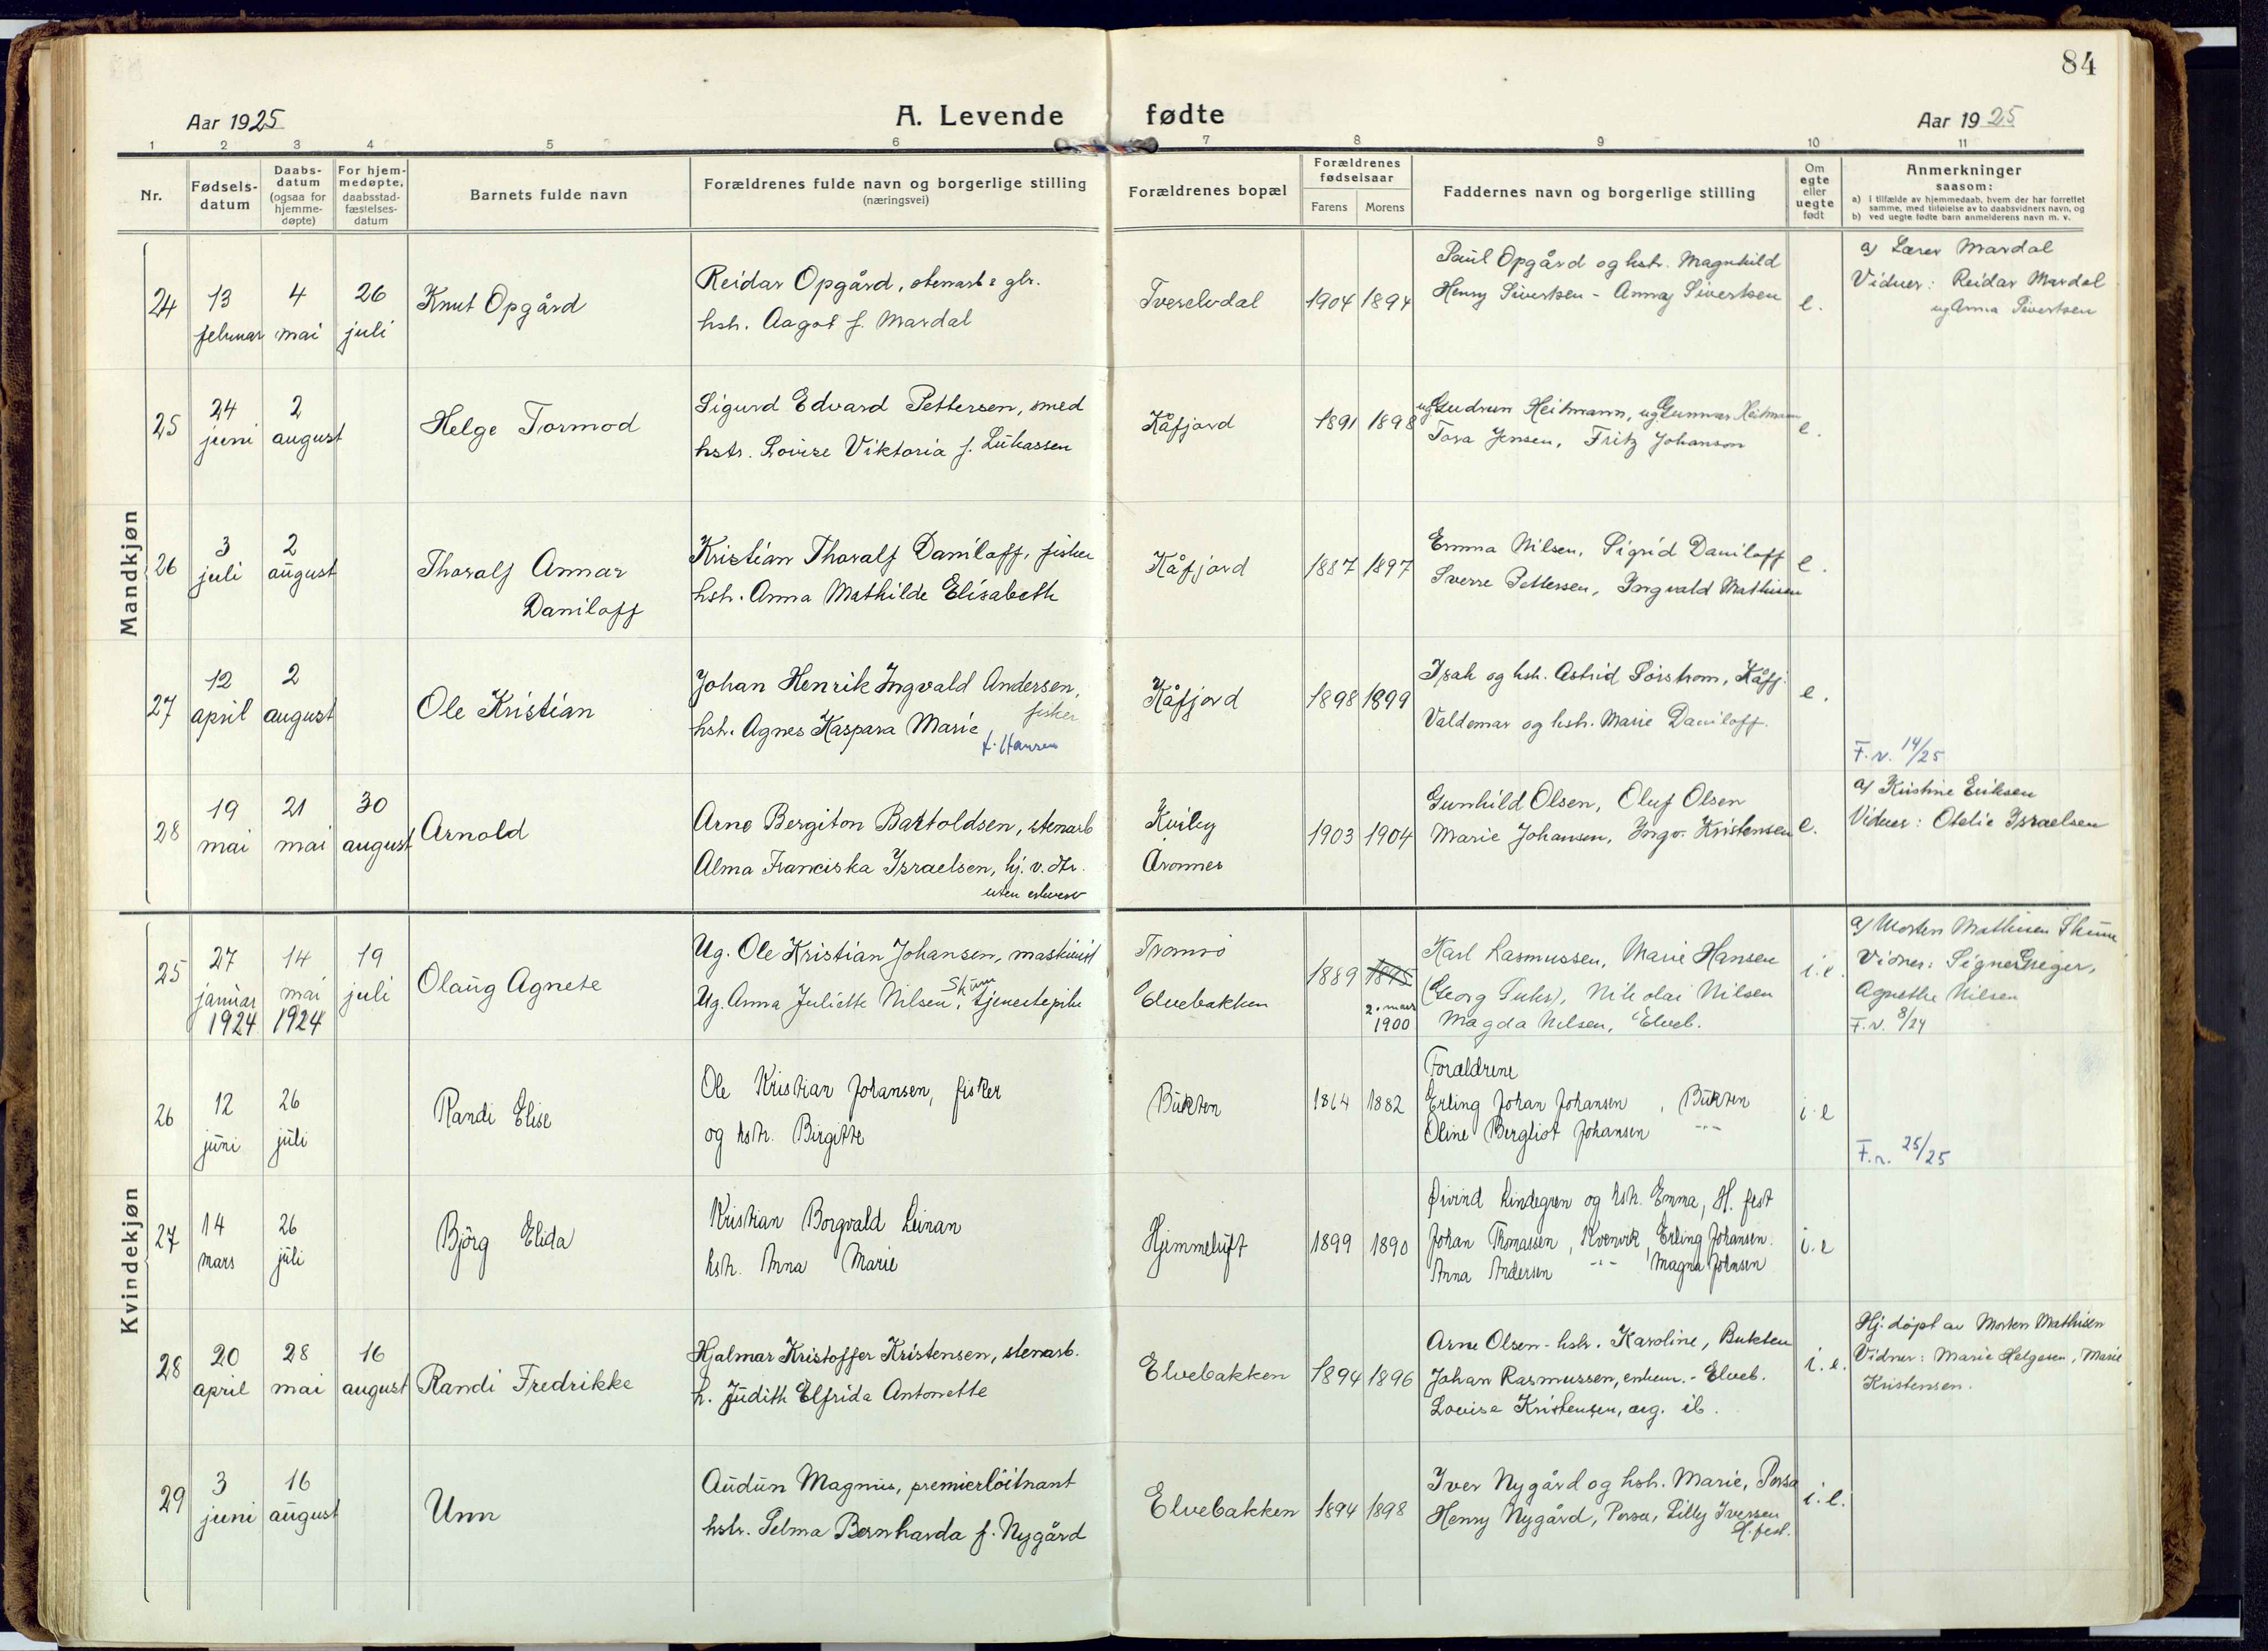 84
Aar 1925
A. Levende fødte
Aar 1925
1 2 3 4 5 6 7 8 9 10 11
Nr.
Fødsels-
datum
Daabs-
datum
(ogsaa for
hjemme-
døpte)
For hjem-
medøpte,
daabsstad-
fæstelses-
datum
Barnets fulde navn
Forældrenes fulde navn og borgerlige stilling
(næringsvei)
Forældrenes bopæl
Forældrenes
fødselsaar
Farens Morens
Faddernes navn og borgerlige stilling
Om
egte
eller
uegte
født
Anmerkninger
saasom:
a) I tilfælde av hjemmedaab, hvem der har forrettet
samme, med tilføielse av to daabsvidners navn, og
b) ved uegte fødte barn anmelderens navn m. v.
Mandkjøn
24
13
februar
4
mai
26
juli
Knut Opgård
Reidar Opgård, stenarb & gbr.
hstr. Aagot f. Mardal
Tverelvdal
1904 1894
Paul Opgård og hstr. Magnhild
Henry Sivertsen - Anna Sivertsen
e.
a) Lærer Mardal
Vidner: Reidar Mardal
ug Anna Sivertsen
25
24
juni
2
august
Helge Tormod
Sigurd Edvard Pettersen, smed
hstr. Lovise Viktoria f. Lukassen
Kåfjord
1891 1898
ug Gudrun Heitmann, ug Gunnar Heitmann
Tora Jensen, Fritz Johanson
e.
26
3
juli
2
august
Thoralf Annar
Daniloff
Kristian Thoralf Daniloff, fisker
hstr. Anna Mathilde Elisabeth
Kåfjord
1887 1897
Emma Nilsen, Sigrid Daniloff
Sverre Pettersen, Ingvald Mathisen
e.
27
12
april
2
august
Ole Kristian
Johan Henrik Ingvald Andersen,
fisker
hstr. Agnes Kaspara Marie
f. Hansen
Kåfjord
1898 1899
Isak og hstr. Astrid Sørstrøm, Kåfj.
Valdemar og hstr. Marie Daniloff.
e.
F.r. 14/25
28
19
mai
21
mai
30
august
Arnold
Arne Bergiton Bartoldsen, stenarb
Alma Franciska Israelsen, hj. v. dtr.
uten erhverv
Kviby
Aronnes
1903 1904
Gunhild Olsen, Oluf Olsen
Marie Johansen, Ingv. Kristensen
e.
a) Kristine Eriksen
Vidner: Otelie Israelsen
Kvindekjøn
25
27
januar
1924
14
mai
1924
19
juli
Olaug Agnete
Ug. Ole Kristian Johansen, maskinist
Skum
Ug. Anna Juliette Nilsen, tjenestepike
Tromsø
Elvebakken
1889 1895
2. mars
1900
Karl Rasmussen, Marie Hansen
(Georg Suhr), Nikolai Nilsen
Magda Nilsen, Elveb.
i.e.
a) Morten Mathisen Skum
Vidner: Signe Greiger,
Agnethe Nilsen
F.r. 8/24
26
12
juni
26
juli
Randi Elise
Ole Kristian Johansen, fisker
og hstr. Birgitte
Bukten
1864 1882
Forældrene
Erling Johan Johansen, Bukten
Oline Bergliot Johansen -"-
i.e
F.r. 25/25
27
14
mars
26
juli
Björg Elida
Kristian Borgvald Leinan
hstr. Anna Marie
Hjemmeluft
1899 1890
Øivind Lindegren og hstr. Emma, H. fest
Johan Thomassen, Kvenvik, Erling Johansen.
Anna Andersen -"- Magna Johnsen
i.e
28
20
april
28
mai
16
august
Randi Fredrikke
Hjalmar Kristoffer Kristensen, stenarb.
h. Judith Elfrida Antonette
Elvebakken
1894 1896
Arne Olsen - hstr. Karoline, Bukten
Johan Rasmussen, enkem. - Elveb.
Lovise Kristensen, ug. ib.
i.e.
Hj. døpt av Morten Mathisen
Vidner: Marie Helgesen, Marie
Kristensen.
29
3
juni
16
august
Unn
Audun Magnus, premierløitnant
hstr. Selma Bernharda f. Nygård
Elvebakken
1894 1898
Iver Nygård og hstr. Marie, Porsa
Henry Nygård, Porsa, Lilly Iversen
H. fest.
i.e.